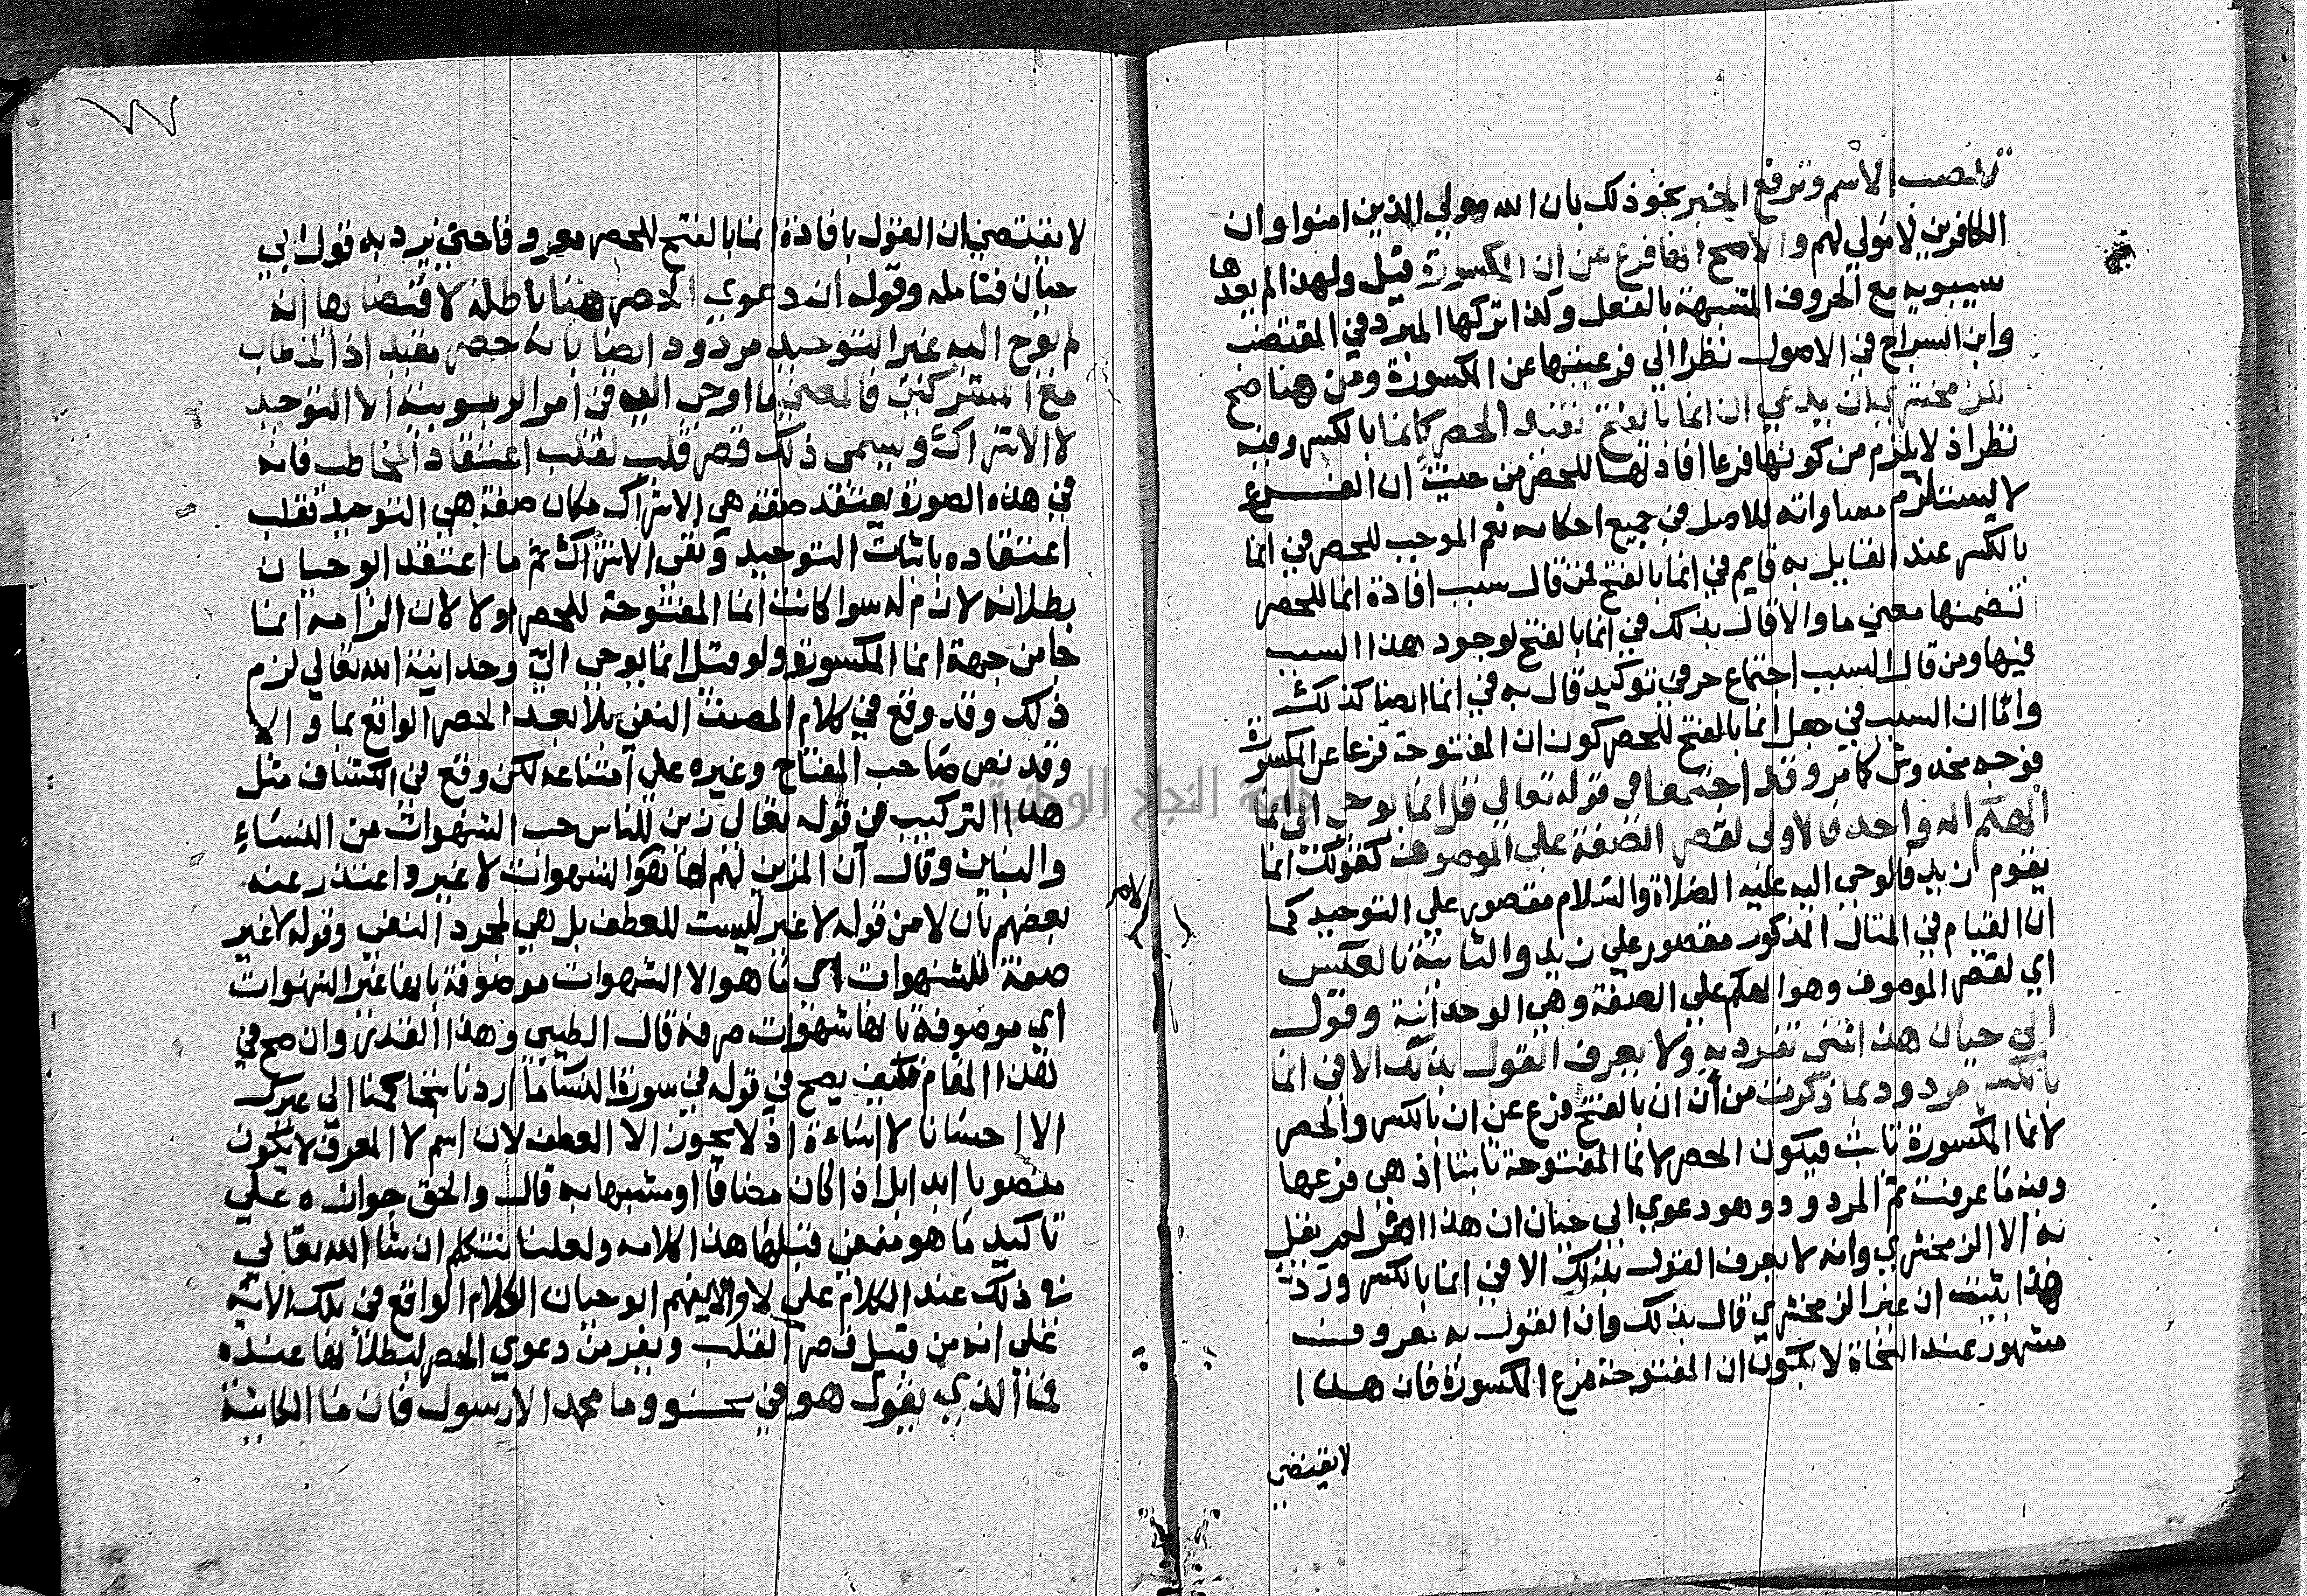 تنصب الاسم وترفع الخبر نحو ذلك بان الله مولي الذين امنوا وان
الكافرين لا مولي لهم والاصح انها فرع عن ان المكسورة قيل ولهذا لم يعدها
سيبويه مع الحروف المشبهة بالفعل وكذا تركها المبرد في المقتضب
وابن السراج في الاصول نظرا الي فرعيتها عن المكسورة ومن هنا صح
للزمخشري ان يدعي ان انما بالفتح تفيد الحصر كانما بالكسر وفيه
نظر اذ لا يلزم من كونها فرعا افادتها للحصر من حيث ان الفرع
لا يستلزم مساواته للاصل في جميع احكامه نعم الموجب للحصر في انما
بالكسر عند القايل به قايم في انما بالفتح فمن قال سبب افادة انما للحصر
تضمنها معني ما والا قال بذلك في انما بالفتح لوجود هذا السبب
فيها ومن قال السبب اجتماع حرفي توكيد قال به في انما ايضا كذلك
واما ان السبب في جعل انما بالفتح للحصر كون ان المفتوحة فرعا عن المكسورة
فوجه مخدوش كما مر وقد اجتمعا في قوله تعالي قل انما يوحي الي انما
الهكم اله واحد فالاولي لقصر الصفة علي الموصوف كقولك انما
يقوم زيد فالوحي اليه عليه الصلاة والسلام مقصور علي التوحيد كما
ان القيام في المثال المذكور مقصور علي زيد والثانية بالعكس
اي لقصر الموصوف وهو الهكم علي الصفة وهي الوحدانية وقول
ابي حيان هذا شي تفرد به ولا يعرف القول بذلك الا في انما
بالكسر مردود بما ذكرت من ان ان بالفتح فرع عن ان بالكسر والحصر
لانما المكسورة ثابت فيكون الحصر لانما المفتوحة ثابتا اذ هي فرعها
وفيه ما عرفت ثم المردود وهو دعوي ابي حيان ان هذا الامر لم يقل
به الا الزمخشري وانه لا يعرف القول بذلك الا في انما بالكسر ورد
هذا يثبت ان غير الزمخشري قال بذلك وان القول به معروف
مشهور عند النحاة لا بكون ان المفتوحة فرع المكسورة فان هذا
لا يقتضي
لا يقتضي ان القول بافادة انما بالفتح للحصر معروفا حتي يرد به قول ابي
حيان فتامله وقوله ان دعوي الحصر هنا باطلة لاقتضايها انه
لم يوح اليه غير التوحيد مردود ايضا بانه حصر مقيد اذ الخطاب
مع المشركين فالمعني ما اوحي اليه في امر الربوبية الا التوحيد
لا الاشراك ويسمي ذلك قصر قلب لقلب اعتقاد المخاطب فانه
في هذه الصورة يعتقد صفة هي الاشراك مكان صفة هي التوحيد فقلب
اعتقاده باثبات التوحيد ونفي الاشراك ثم ما اعتقد ابو حيان
بطلانه لازم له سوا كانت انما المفتوحة للحصر او لا لان الزامه انما
جا من جهة انما المكسورة ولو قيل انما يوحي الي وحدانية الله تعالي لزم
ذلك وقد وقع في كلام المصنف النفي بلا بعد الحصر الواقع بما والا
وقد نص صاحب المفتاح وغيره علي امتناعه لكن وقع في الكشاف مثل
هذا التركيب في قوله تعالي زين للناس حب الشهوات من النساء
والبنين وقال ان المزين لهم انما هو الشهوات لا غير واعتذر عنه
بعضهم بان لا من قوله لا غير ليست للعطف بل هي لمجرد النفي وقوله لا غير
صفة للشهوات اي ما هو الا الشهوات موصوفة بانها غير الشهوات
اي موصوفة بانها شهوات صرفة قال الطيبي وهذا العذر وان صح في
هذا المقام فكيف يصح في قوله في سورة النسا ما اردنا بتحاكمنا الي غيرك
الا احسانا لا اساءة اذ لا يجوز الا العطف لان اسم لا المعرف لا يكون
منصوبا ابدا الا اذا كان مضافا او مشبها به قال والحق جوازه علي
تاكيد ما هو منفي قبلها هذا كلامه ولعلنا نتكلم ان شا الله تعالي
في ذلك عند الكلام علي لا ولم يفهم ابو حيان الكلام الواقع في تلك الاية
علي انه من قبيل قصر القلب ويفر من دعوي الحصر لبطلانها عنده
فما الذي يقول هو في نحو وما محمد الا رسول فان ما الكاينة